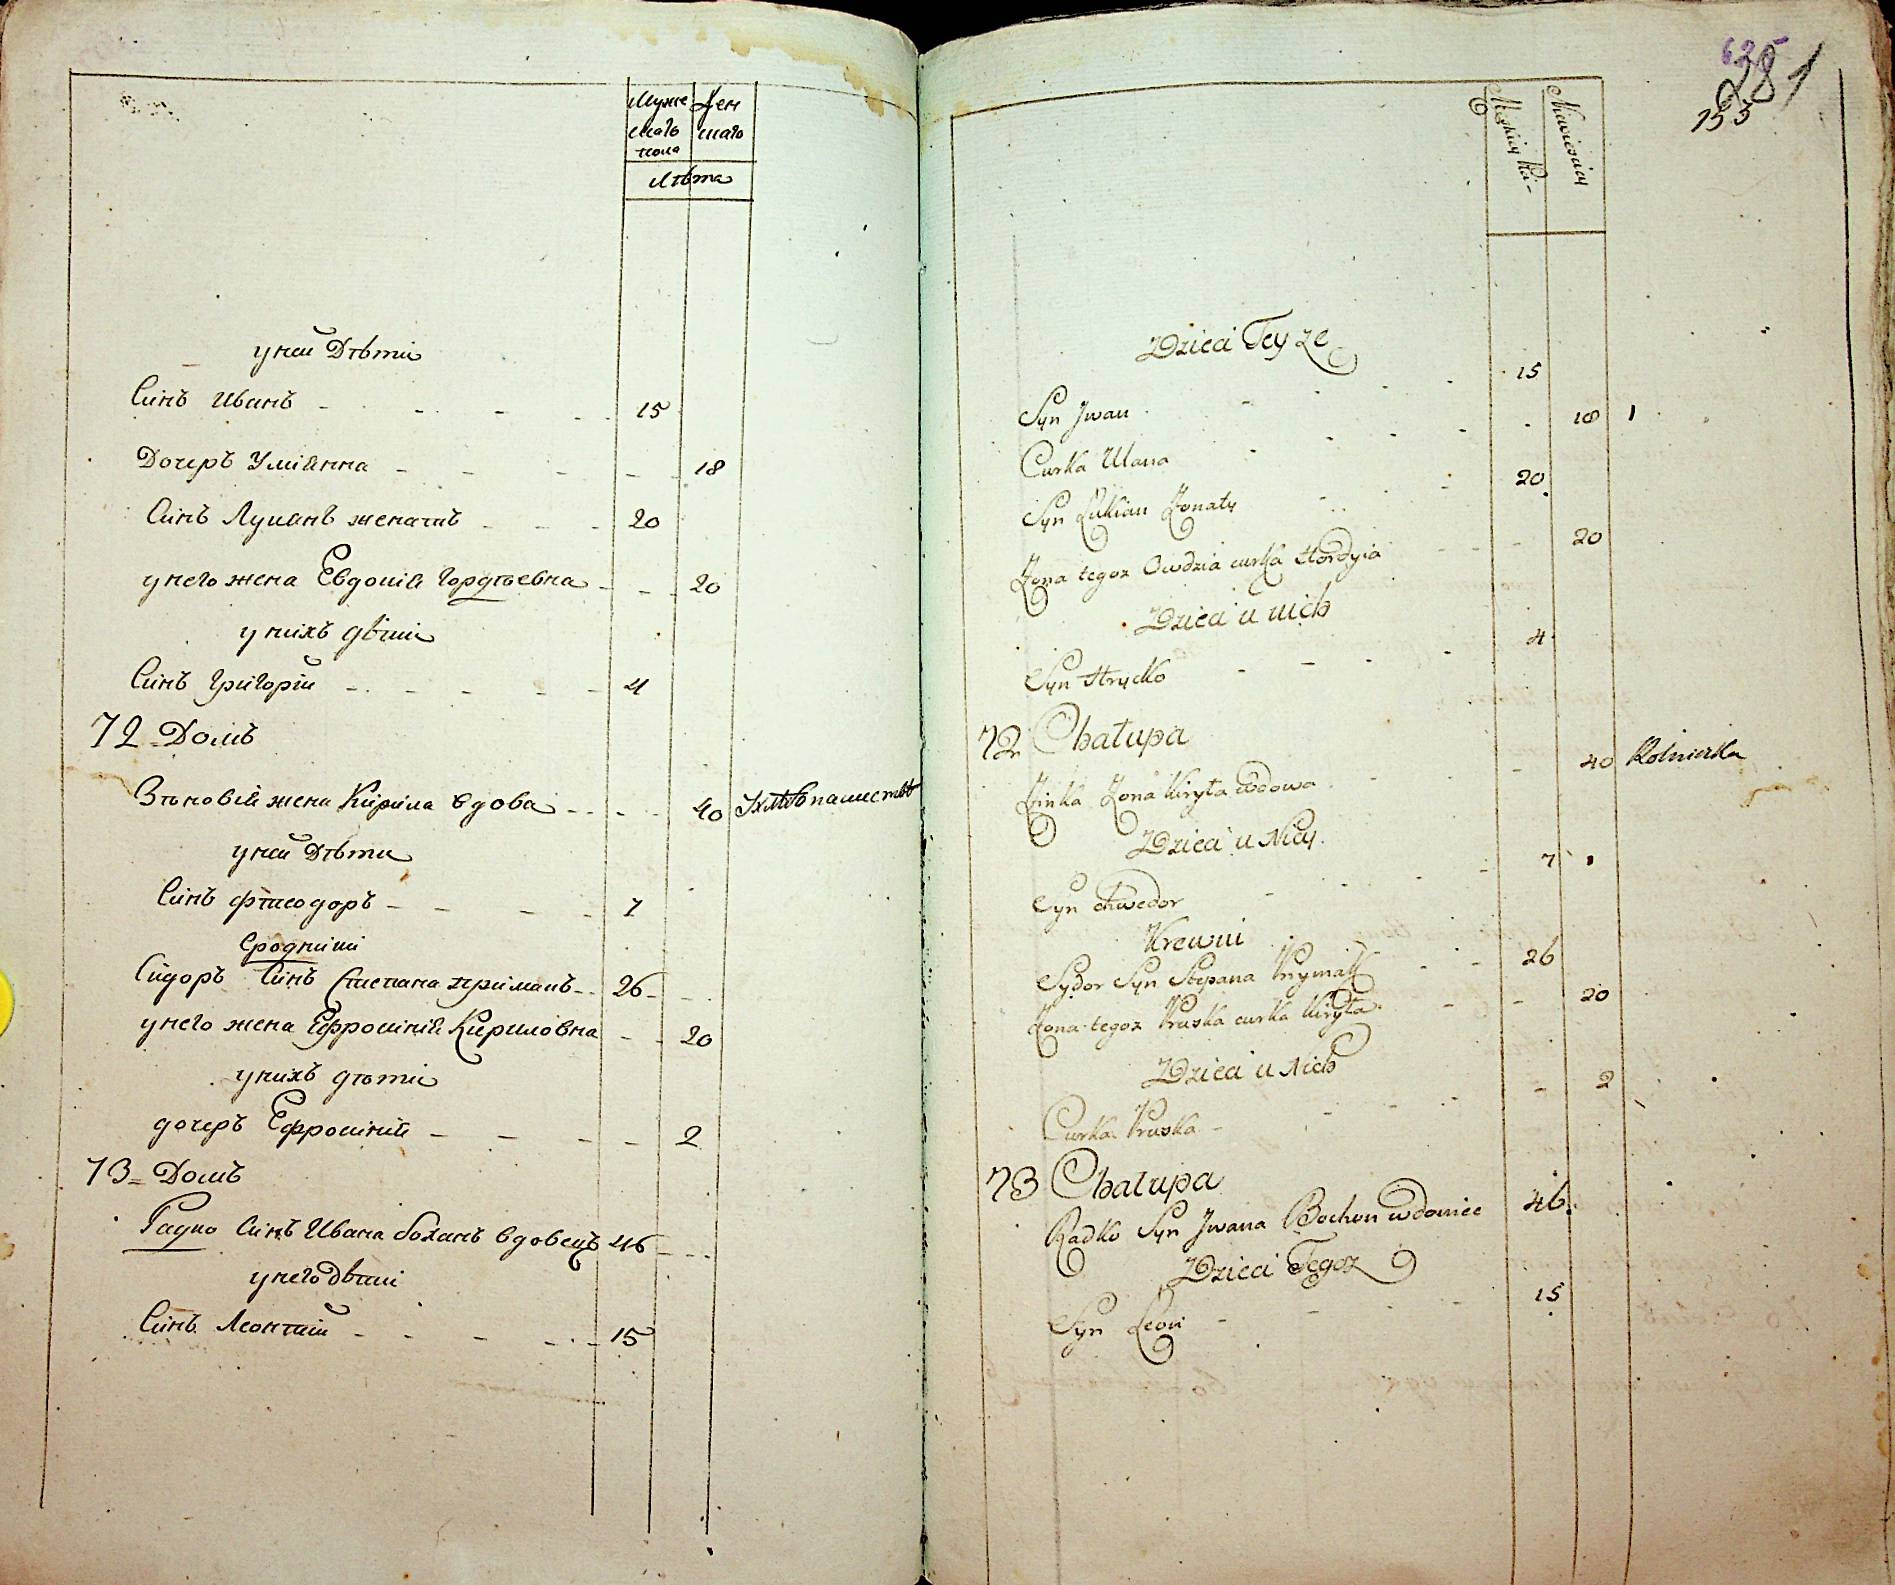 Муже Жен
скаго скаго
пола
лѣта
у ней Дѣти
Синъ Иванъ 15
Дочеръ Улиянна 18
Синъ Лукянъ женатъ 20
у него жена Евдокія Гордѣевна 20
у нихъ дѣти
Синъ Григорій 4
72 Домъ
Зѣновія жена Кирила вдова 40
у ней Дѣти
Синъ Фтеодоръ 7
Сродники
Сидоръ Синъ Степана примакъ 26
у него жена Ефросинія Кириловна 20
у нихъ дѣти
дочеръ Ефросинія 2
73 Домъ
Радко Синъ Ивана боханъ вдовецъ 46
у него Дѣти
Синъ Леонтій 15
281
153
Dzieci Teyze
Syn Jwan 15
Curka Ulana 18 1
Syn Łukian Żonaty 20
Żona tegoz Owdzia curka Hordyia 20
Dzieci u nich
Syn Hrycko 4
72 Chałupa
Zinka Żona Kiryła wdowa 40 Rolniczka
Dzieci u Niey
Syn Chwedor 7
Krewni
Sydor Syn Stepana Prymak 26
Żona tegoz Pruska curka Kiryła 20
Dzieci u Nich
Curka Pruska 2
73 Chałupa
Radko Syn Jwana Bochon wdowiec 46
Dzieci Tegoz
Syn Leon 15